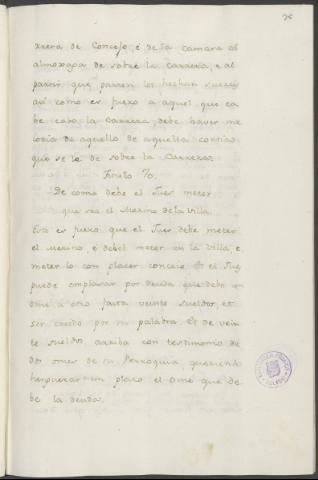 xxera de Concejo, é de la Camara al
almoxapa de sobre la Carrera, e al
partir que parten los
asi como es fuero a aquel que ca
be cabo la Carrera, debe haver me
toria de aquello de aquella contias
que se le de sobre la Carrera.
Titulo 70.
De como debe el Juez meter
que sea el Merino de la Villa.
Esto es fuero que el Juez debe meter
el Merino, é debel meter en la Villa, e
meterlo con placer conceio. Et el Juez
puede emplazar por deuda que debe un
ome a otro fasta veinte sueldos, et
ser creido por su palabra. Et de vein
te sueldos arriba con testimonio de
dos omes de su Perroquia,
en plazo el ome que de
be la deuda.